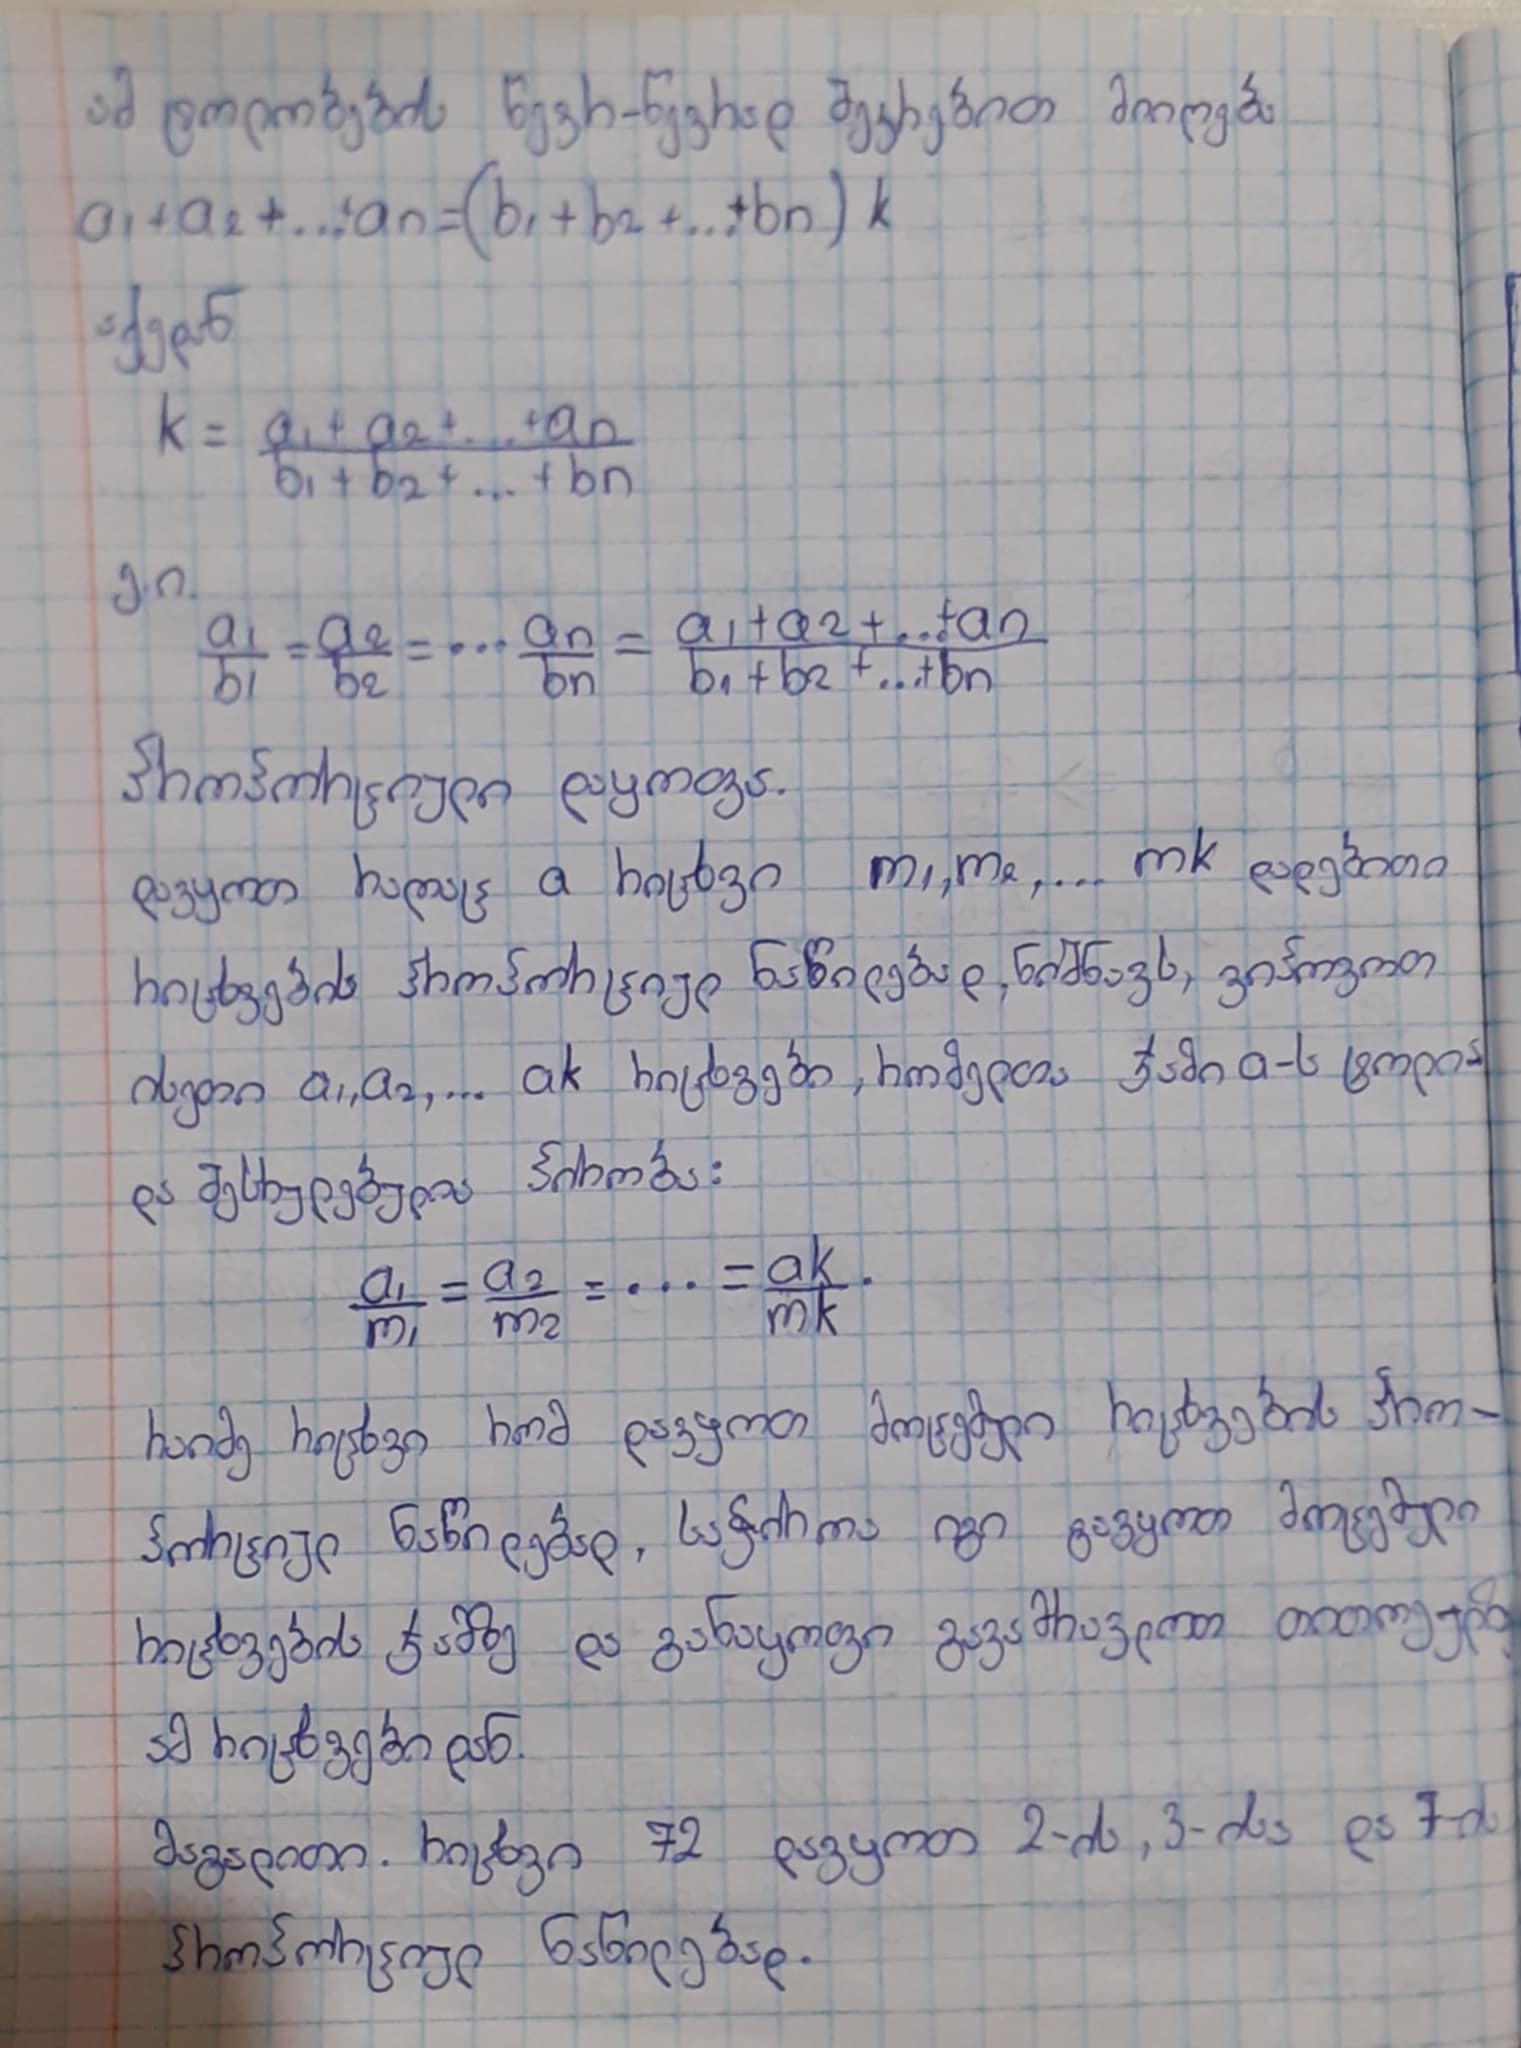 ამ ტოლობების წევრ-წევრად შეკრებით მიიღება
a₁+a₂+...+an=(b₁+b₂+...+bn)k
აქედან
k = (a₁+a₂+...+an)/(b₁+b₂+...+bn)
ე.ი.
a₁/b₁ = a₂/b₂ = ... an/bn = (a₁+a₂+...+an)/(b₁+b₂+...+bn)
პროპორციული დაყოფა.
დავყოთ რაღაც a რიცხვი m₁,m₂,... mk დადებითი
რიცხვების პროპორციულ ნაწილებად, ნიშნავს, ვიპოვოთ
ისეთი a₁,a₂,... ak რიცხვები, რომელთა ჯამი a-ს ტოლია
და შესრულებულია პირობა:
a₁/m₁ = a₂/m₂ = ... = ak/mk.
რაიმე რიცხვი რომ დავყოთ მოცემული რიცხვების პრო-
პორციულ ნაწილებად, საჭიროა იგი გავყოთ მოცემული
რიცხვების ჯამზე და განაყოფი გავამრავლოთ თითოეულზე
ამ რიცხვებიდან.
მაგალითი. რიცხვი 72 დავყოთ 2-ის, 3-ისა და 7-ის
პროპორციულ ნაწილებად.